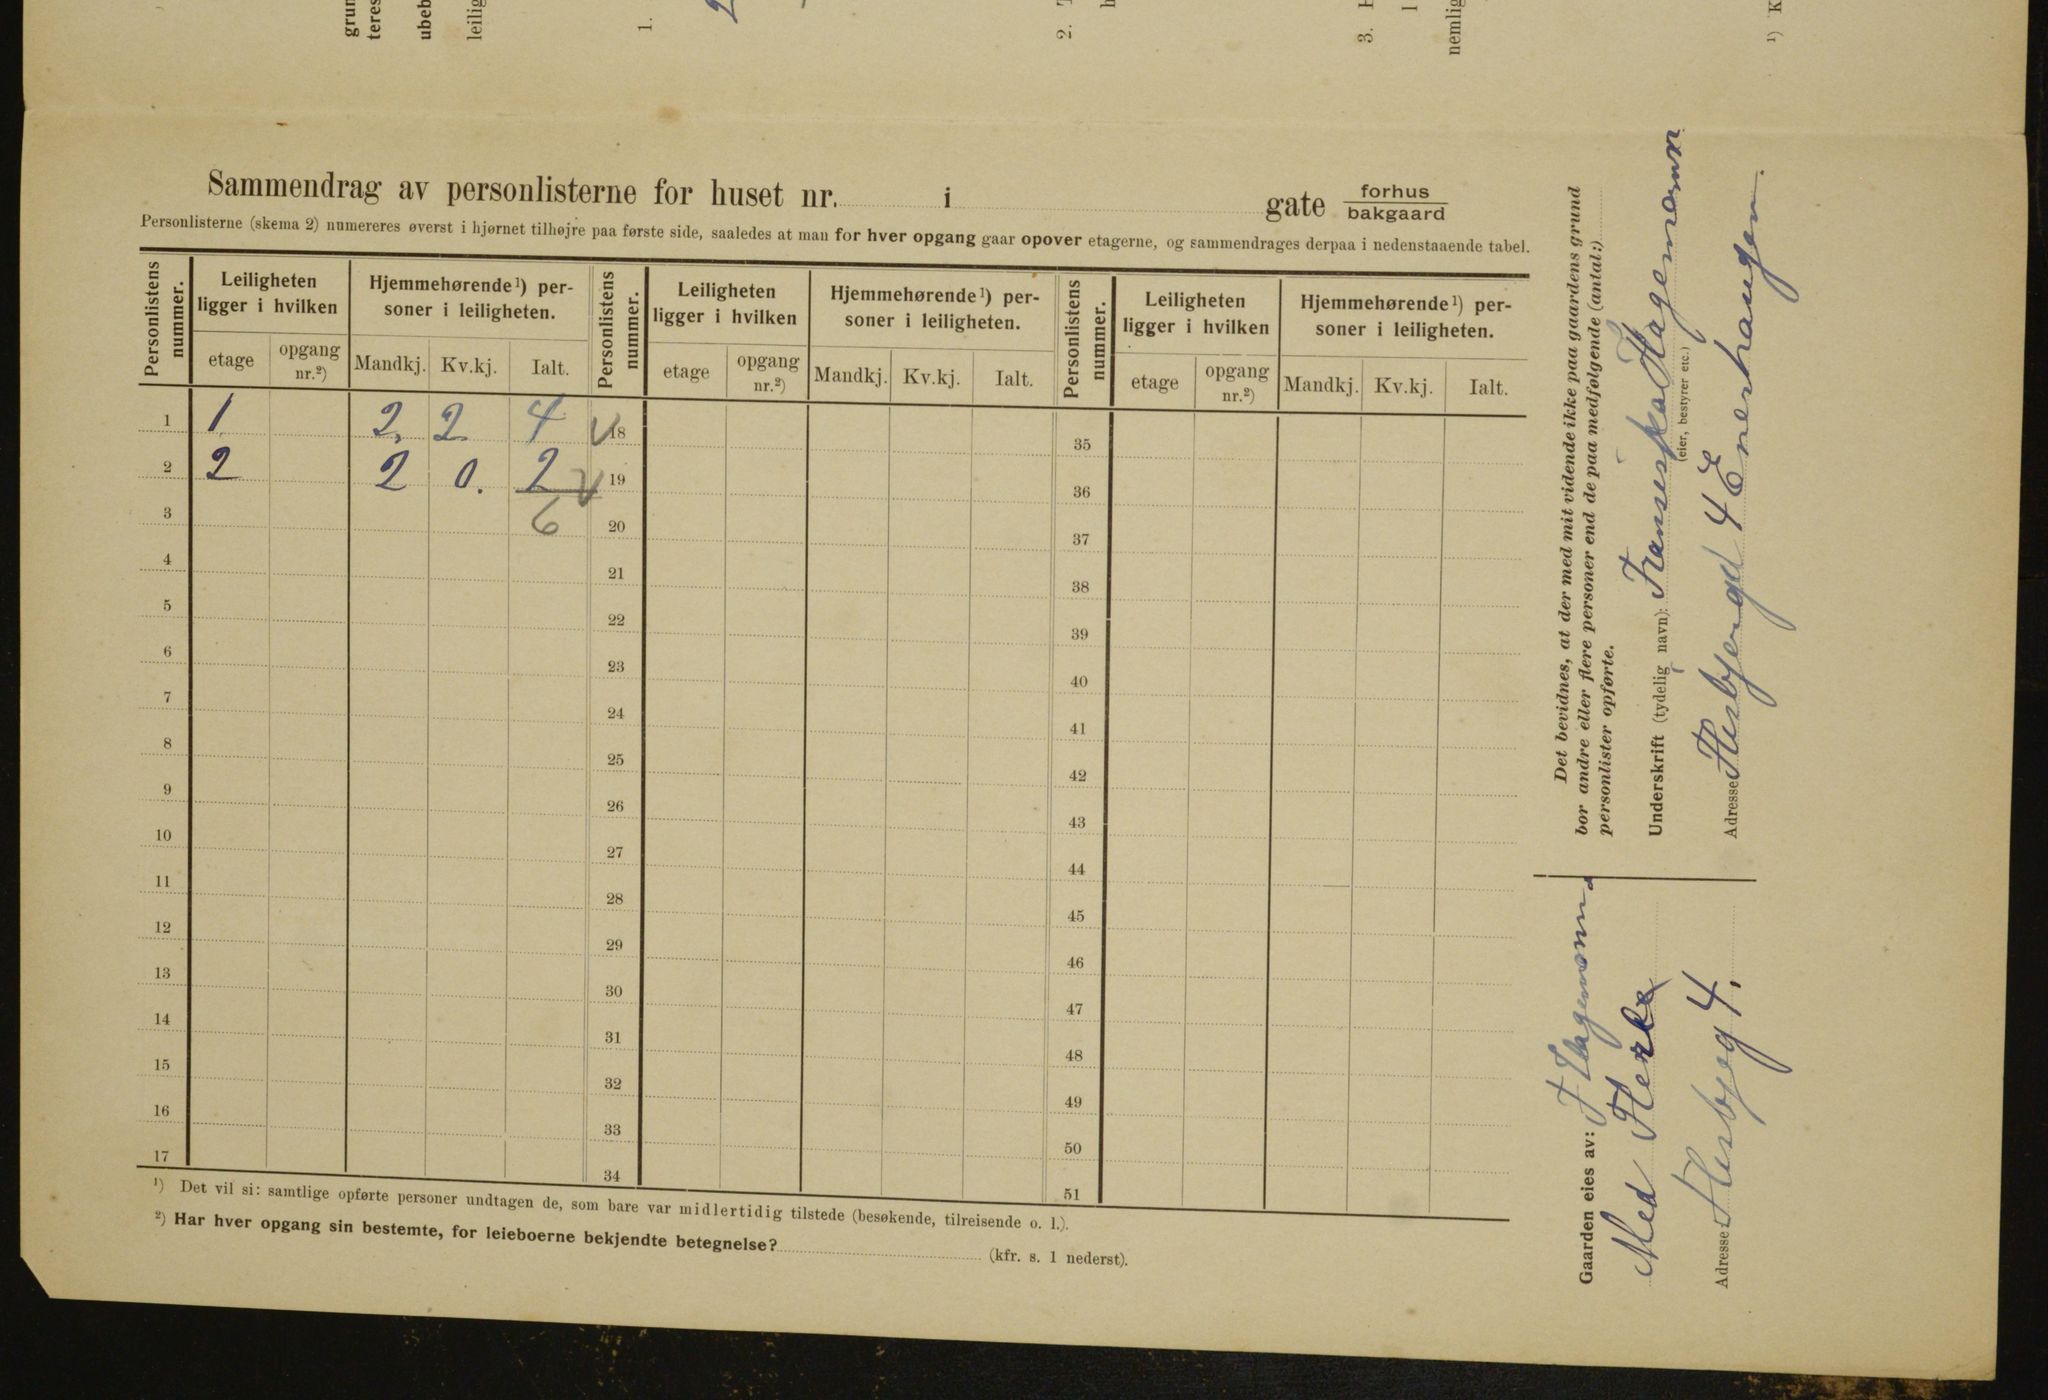 grun
teres
ubeb
leilig
1.
2. T
h
3. H
l
nemlig
¹) K
Sammendrag av personlisterne for huset nr. i gate forhus
bakgaard
Personlisterne (skema 2) numereres øverst i hjørnet tilhøjre paa første side, saaledes at man for hver opgang gaar opover etagerne, og sammendrages derpaa i nedenstaaende tabel.
Personlistens nummer. Leiligheten ligger i hvilken Hjemmehørende¹) personer i leiligheten. Personlistens nummer. Leiligheten ligger i hvilken Hjemmehørende¹) personer i leiligheten. Personlistens nummer. Leiligheten ligger i hvilken Hjemmehørende¹) personer i leiligheten.
etage opgang nr.²) Mandkj. Kv.kj. Ialt. etage opgang nr.²) Mandkj. Kv.kj. Ialt. etage opgang nr.²) Mandkj. Kv.kj. Ialt.
1 1 2. 2 4 18 35
2 2 2 0. 2 19 36
3 6 20 37
4 21 38
5 22 39
6 23 40
7 24 41
8 25 42
9 26 43
10 27 44
11 28 45
12 29 46
13 30 47
14 31 48
15 32 49
16 33 50
17 34 51
¹) Det vil si: samtlige opførte personer undtagen de, som bare var midlertidig tilstede (besøkende, tilreisende o. l.).
²) Har hver opgang sin bestemte, for leieboerne bekjendte betegnelse? (kfr. s. 1 nederst).
Gaarden eies av: F Hagemann
Med Flere
Adresse Hesbjerg 4.
Det bevidnes, at der med mit vidende ikke paa gaardens grund
bor andre eller flere personer end de paa medfølgende (antal:)
personlister opførte.
Underskrift (tydelig navn): Fransiska Hagemann
(eier, bestyrer etc.)
Adresse Hesbjergd 4 Enerhaugen.